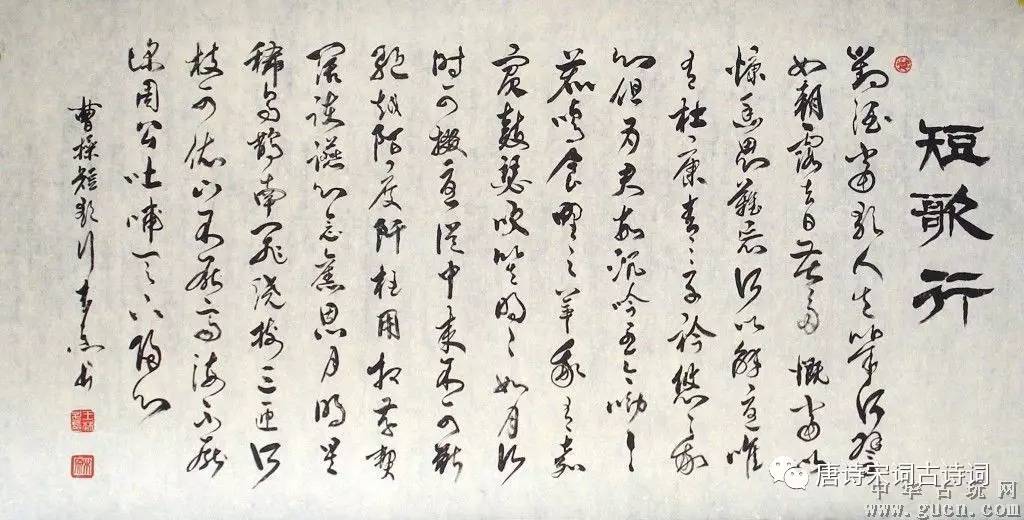 短歌行
對酒當歌人生幾何譬
如朝露去日苦多慨當以
慷幽思難忘何以解憂唯
有杜康青々子衿悠々我
心但为君故沉吟至今呦々
鹿鳴食野之苹我有嘉
賓鼓瑟吹笙明々如月何
时可掇憂從中来不可斷
絕越陌度阡枉用相存契
闊談讌心念舊恩月明星
稀烏鵲南飛繞樹三匝何
枝可依山不厭高海不厭
深周公吐哺天下歸心
曹操短歌行
唐诗宋词古诗词
中华古玩网
www.gucn.com